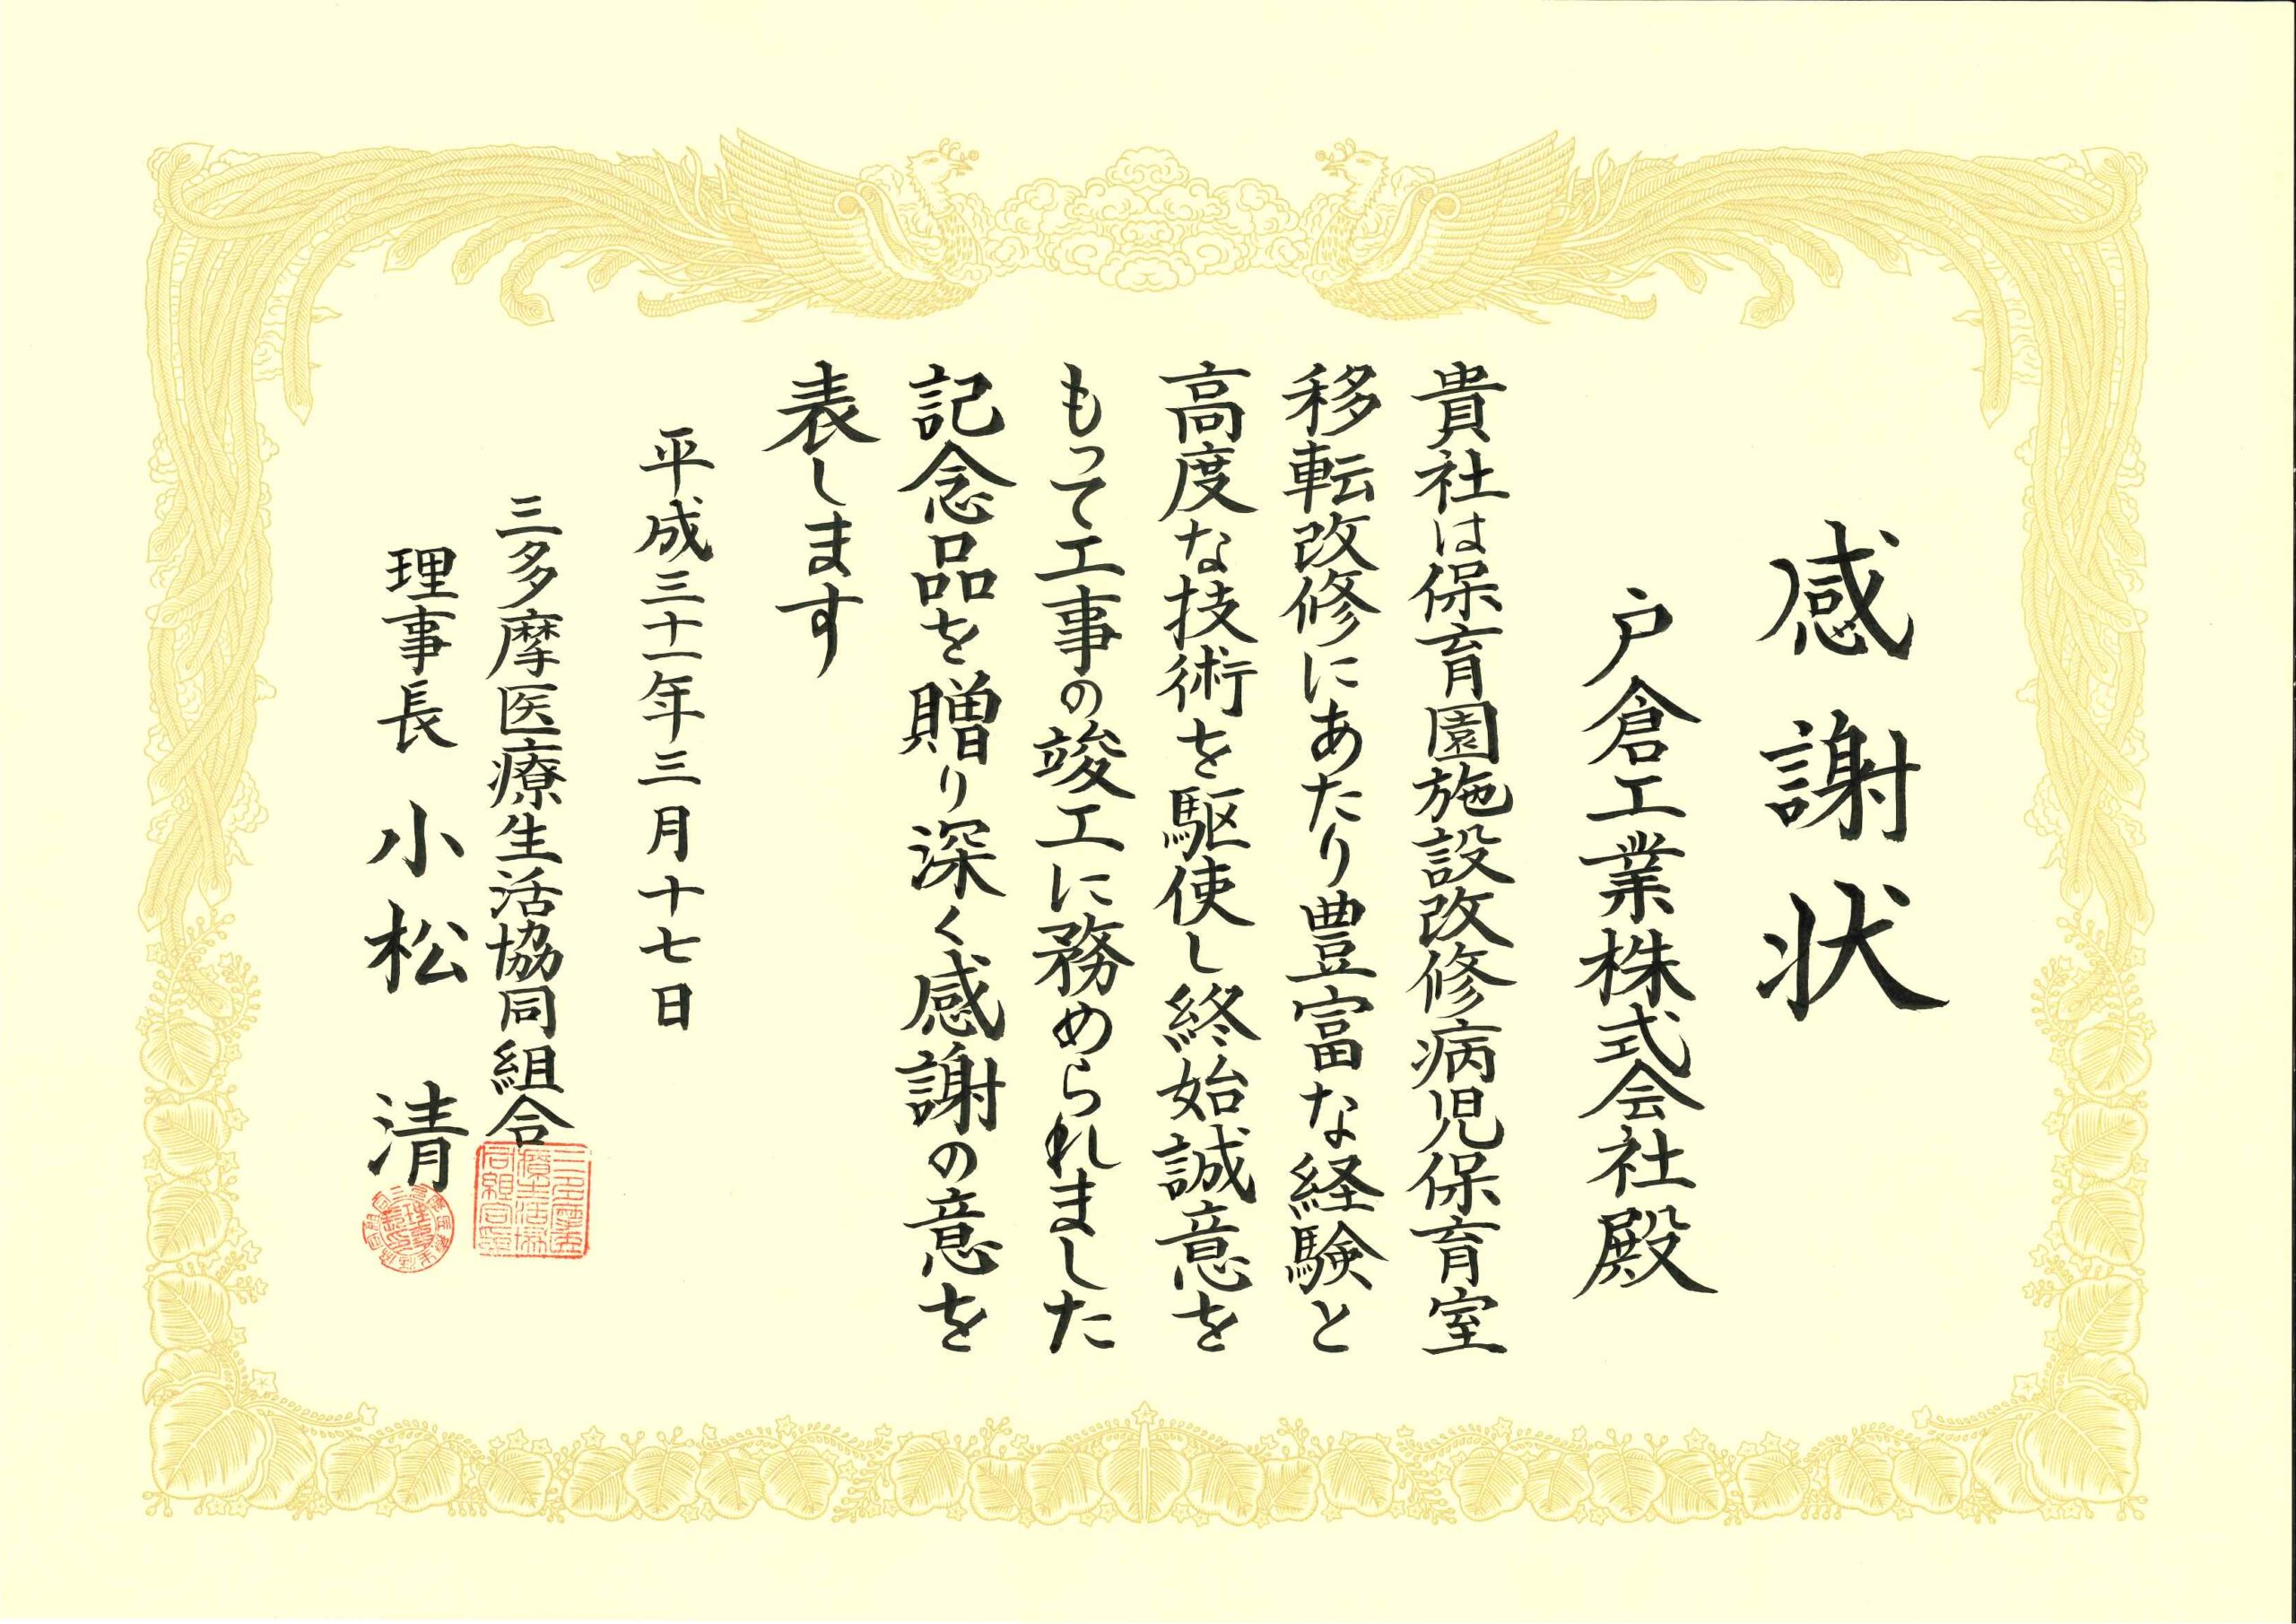 感謝状
戸倉工業株式会社殿
貴社は保育園施設改修病児保育室
移転改修にあたり豊富な経験と
高度な技術を駆使し終始誠意を
もって工事の竣工に務められました
記念品を贈り深く感謝の意を
表します
平成三十一年三月十七日
三多摩医療生活協同組合
理事長 小松 清